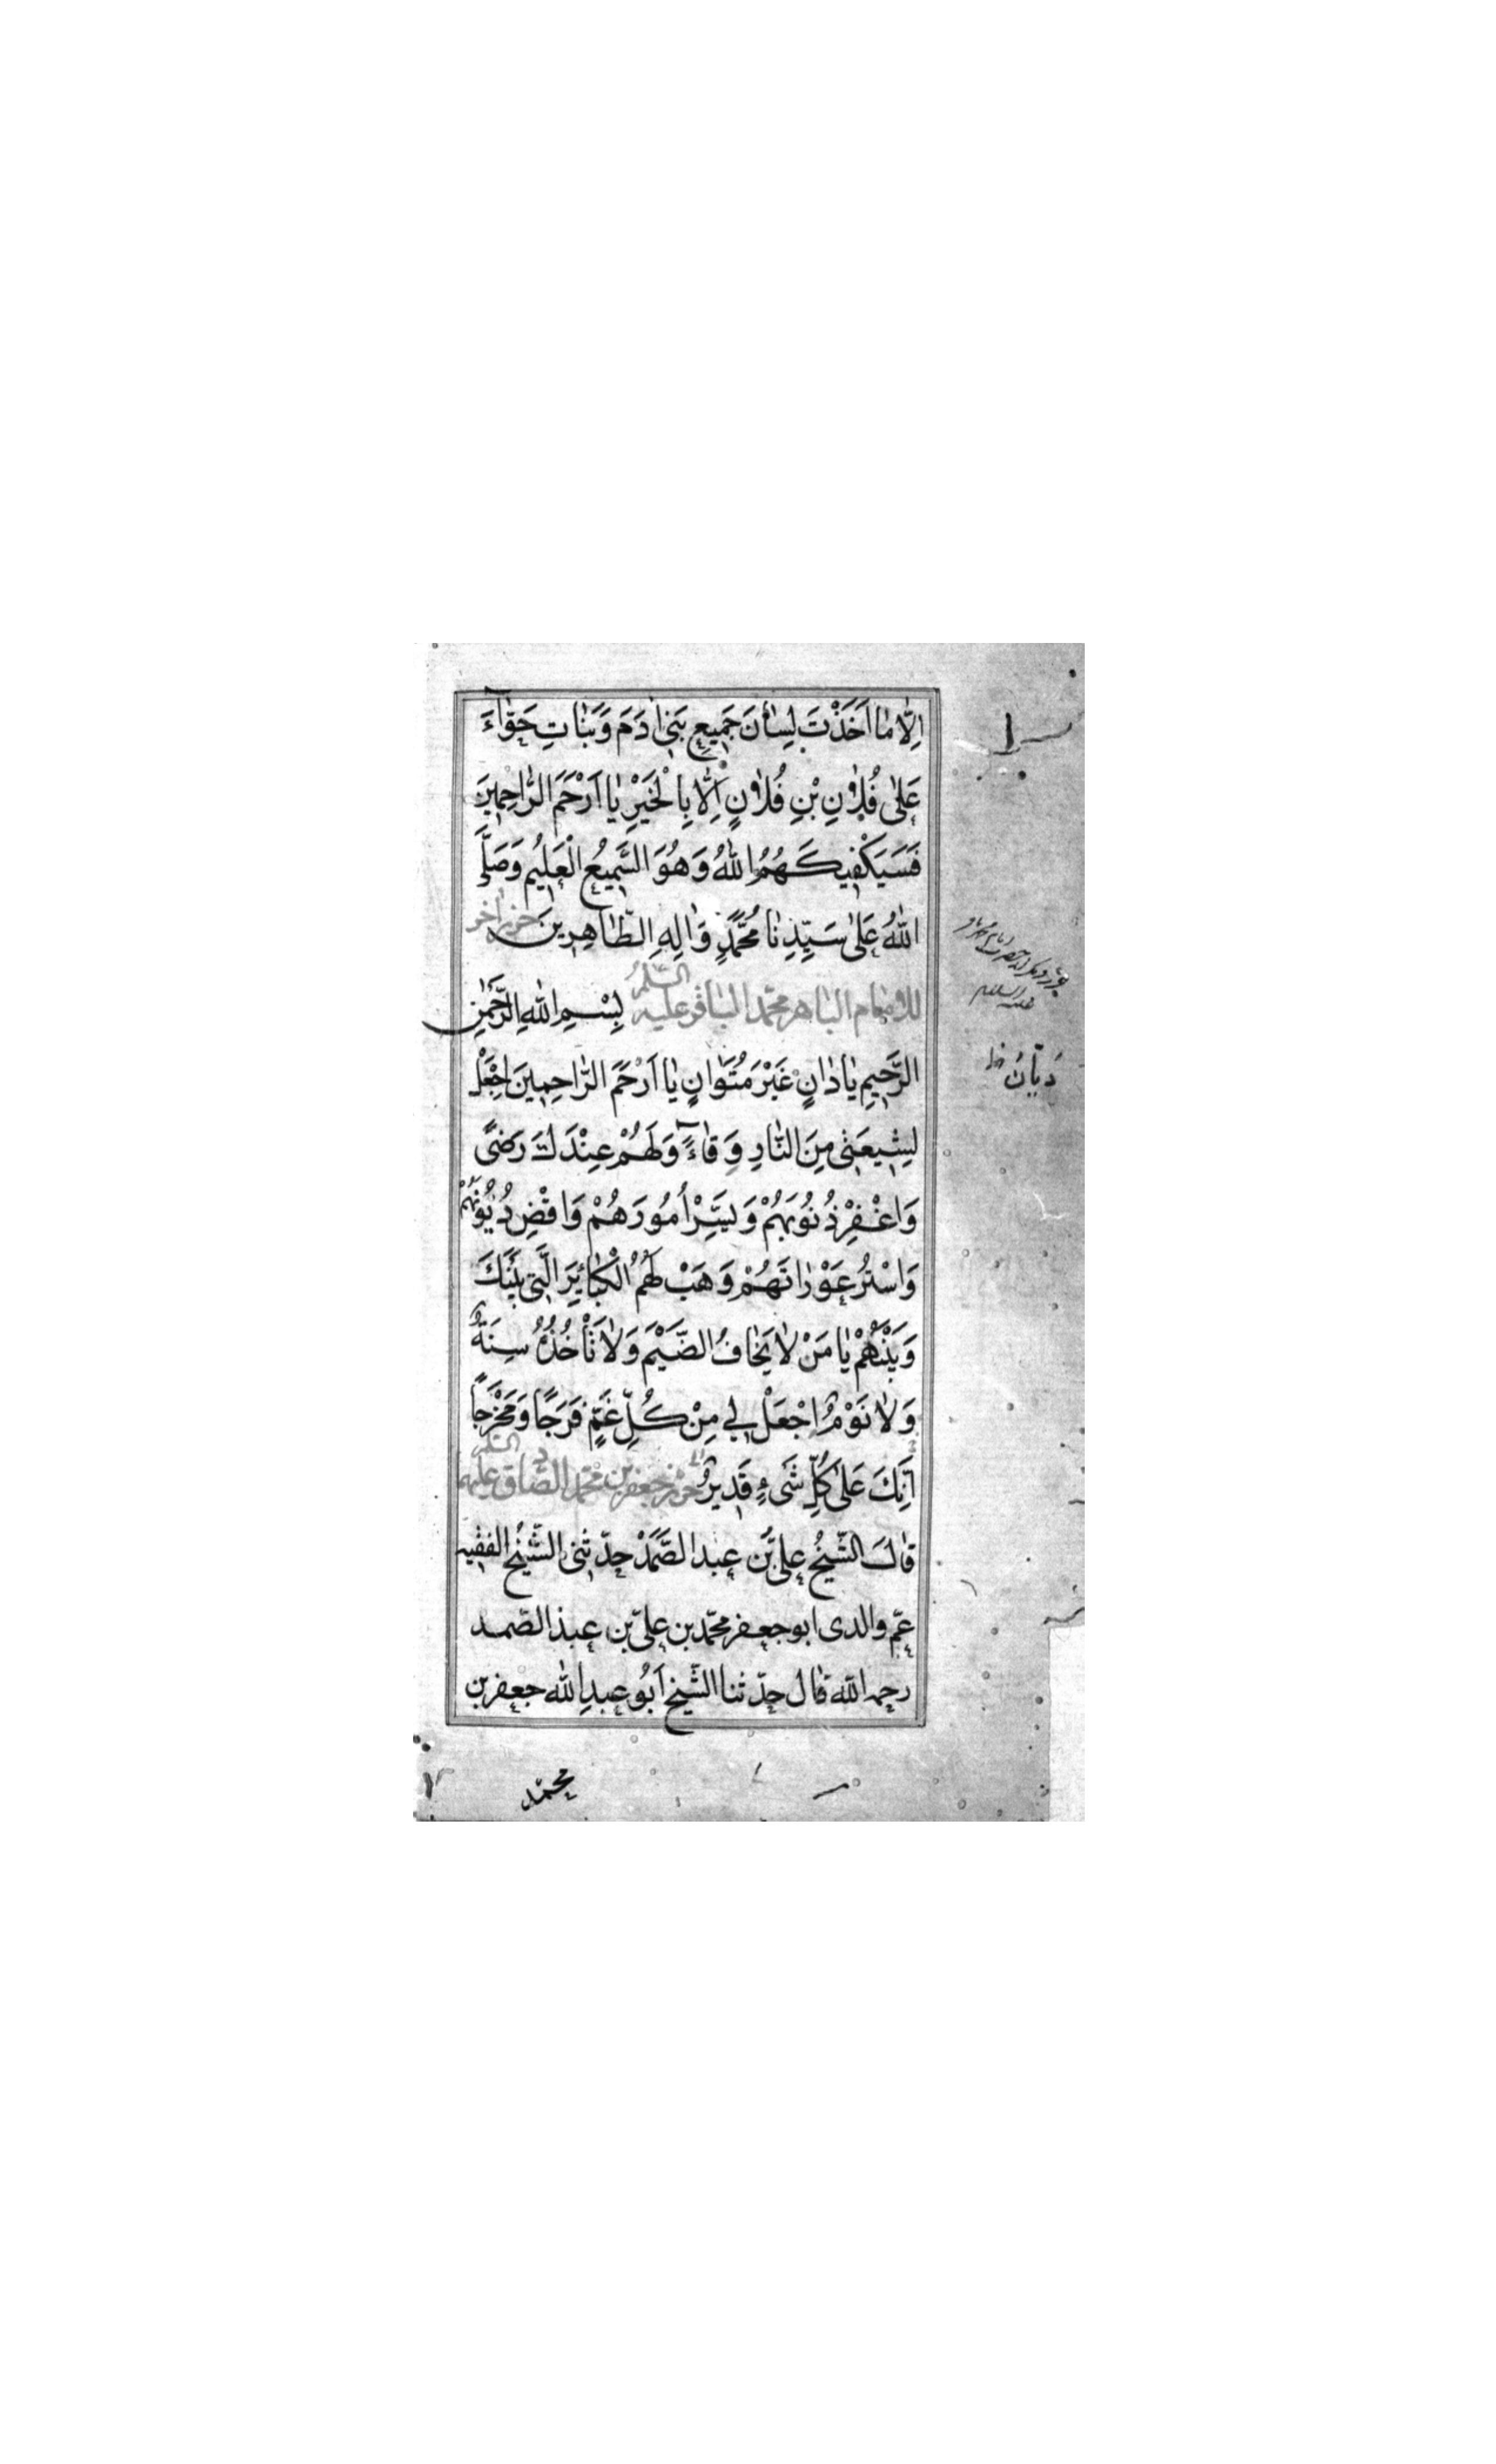 اِلّٰا مٰا اَخَذْتَ لِسٰانَ جَمِيعِ بَنِي اٰدَمَ وَبَنٰاتِ حَوّٰاءَ
عَلٰى فُلٰانِ بْنِ فُلٰانٍ اِلّٰا بِالْخَيْرِ يٰا اَرْحَمَ الرّٰاحِمِينَ
فَسَيَكْفِيكَهُمُ اللّٰهُ وَهُوَ السَّمِيعُ الْعَلِيمُ وَصَلَّى
اللّٰهُ عَلٰى سَيِّدِنٰا مُحَمَّدٍ وَاٰلِهِ الطّٰاهِرِينَ حرز اخر
للامام الباهر محمّد الباقر عليه السّلم بِسْمِ اللّٰهِ الرَّحْمٰنِ
الرَّحِيمِ يٰا دٰانٍ غَيْرَ مُتَوٰانٍ يٰا اَرْحَمَ الرّٰاحِمِينَ اِجْعَلْ
لِشِيعَتِي مِنَ النّٰارِ وِقٰاءً وَلَهُمْ عِنْدَكَ رَضِىً
وَاغْفِرْ ذُنُوبَهُمْ وَيَسِّرْ اُمُورَهُمْ وَاقْضِ دُيُونَهُمْ
وَاسْتُرْ عَوْرٰاتَهُمْ وَهَبْ لَهُمُ الْكَبٰائِرَ الَّتِي بَيْنَكَ
وَبَيْنَهُمْ يٰا مَنْ لٰا يَخٰافُ الضَّيْمَ وَلٰا تَأْخُذُهُ سِنَةٌ
وَلٰا نَوْمٌ اِجْعَلْ لِي مِنْ كُلِّ غَمٍّ فَرَجًا وَمَخْرَجًا
اِنَّكَ عَلٰى كُلِّ شَيْءٍ قَدِيرٌ حرز جعفر بن محمّد الصّادق عليهما السّلم
قٰالَ الشّيخُ علىّ بن عبد الصَّمَدْ حدّثنى الشّيخ الفقيه
عمّ والدى ابو جعفر محمّد بن علىّ بن عبد الصّمد
رحمه اللّه قٰال حدّثنا الشّيخ اَبُو عبدِ اللّه جعفر بن
دَيّٰانُ
عليه السلام
محمّد